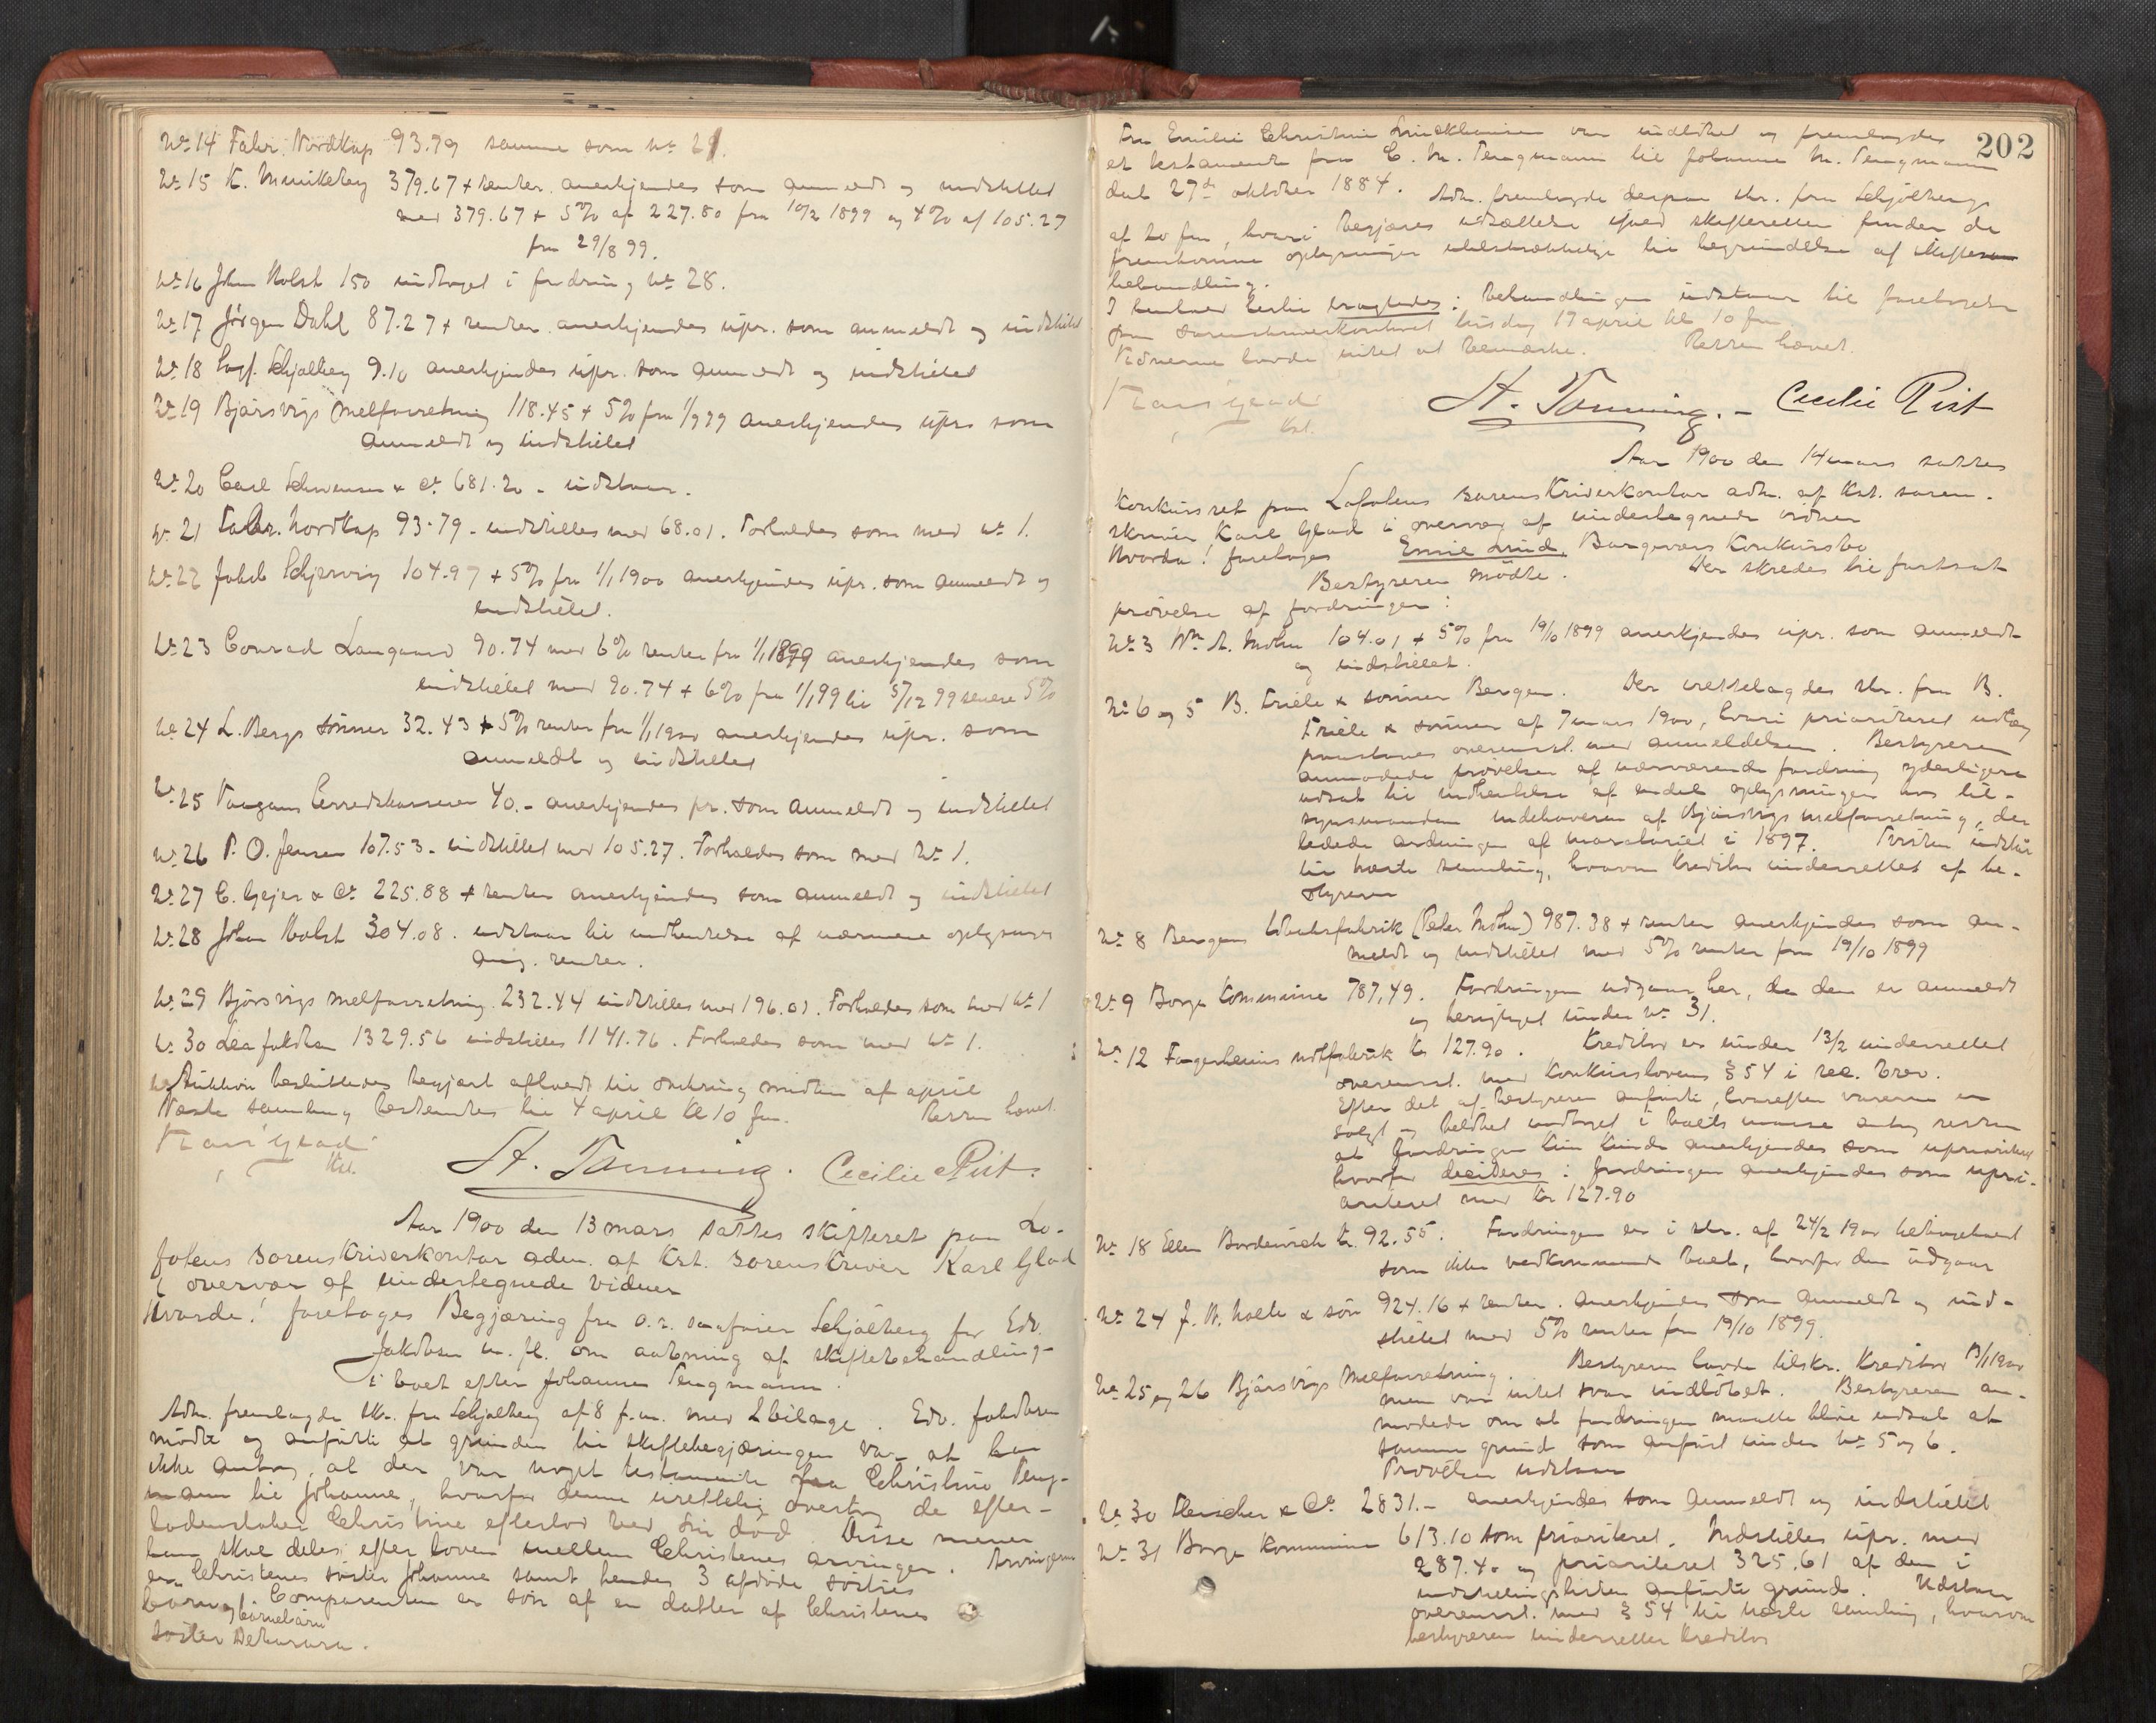 No 14 Fabr. Nordkap 93.79 samme som No 21.
No 15 K. Munkeberg 379.67 + renter. anerkjendes som anmeldt og indstillet
med 379.67 + 5% af 227.80 fra 10/2 1899 og 4% af 105.27
fra 29/8 99.
No 16 John Holst 150 indtaget i fordring No 28.
No 17 Jørgen Dahl 87.27 + renter. anerkjendes upr. som anmeldt og indstillet
No 18 Sagf. Schjølberg 9.10 anerkjendes upr. som anmeldt og indstillet
No 19 Bjørsvigs Melforretning 118.45 + 5% fra 1/9 99 anerkjendes upr. som
anmeldt og indstillet
No 20 Carl Schwenzen & Co 681.20 - udstaar.
No 21 Fabr. Nordkap 93.79 - indstilles med 68.01. Forholdes som med No 1.
No 22 Jakob Schjærvig 104.97 + 5% fra 1/1 1900 anerkjendes upr. som anmeldt og
indstillet.
No 23 Conrad Langaard 90.74 med 6% renter fra 1/1 1899 anerkjendes som
indstillet med 90.74 + 6% fra 1/1 99 til 5/12 99 senere 5%
No 24 L. Bergs Sønner 32.43 + 5% renter fra 1/1 1900 anerkjendes upr. som
anmeldt og indstillet
No 25 Vaagans Herredskasserer 40.- anerkjendes pr. som anmeldt og indstillet
No 26 P. O. Jensen 107.53 - indstillet med 105.27. Forholdes som med No 1.
No 27 C. Geijer & Co 225.88 + renter anerkjendes som anmeldt og indstillet
No 28 Johan Holst 304.08. udstaar til indhentelse af nærmere oplysninger
ang. renter.
No 29 Bjørsvigs Melforretning. 232.44 indstilles med 196.01. Forholdes som med No 1
No 30 Lea Jakobsen 1329.56 indstilles 1141.76. Forholdes som med No 1.
Auktion besluttedes begjært afholdt til omkring midten af april
Næste samling bestemtes til 4 april kl 10 fm. Retten hævet.
Karl Glad
Kst.
H. Tønning. Cecilie Rist.
Aar 1900 den 13 mars sattes skifteret paa Lo-
fotens sorenskriverkontor adm. af Kst. sorenskriver Karl Glad
i overvær af undertegnede vidner
Hvorda! foretages Begjæring fra o.r. sagfører Schjølberg for Edv.
Jakobsen m. fl. om aabning af skiftebehandling
i boet efter Johanne Tengmann.
Adm. fremlagde skr. fra Schjølberg af 8 f.m. med 1 bilage. Edv. Jakobsen
mødte og anførte at grunden til skiftebegjæringen var, at han
ikke antog, at der var noget testamente fra Christine Teng-
mann til Johanne, hvorfor denne urettelig overtog de efter-
ladenskaber Christine efterlod ved sin død. Disse mener
han skal deles efter loven mellem Christines arvinger. Arvingerne
er Christines søster Johanne samt hendes 3 afdøde søstres
børn og børnebørn Comparenten er søn af en datter af Christines
søster
202
Fru Emilie Christine var indløbet og fremlagdes
et testamente fra C. M. Tengmann til Johanne M. Tengmann
dat 27de oktober 1884. Adm. fremlagde derpaa skr. fra Schjølberg
af 20 fm, hvori begjæres udsættelse ifald skifteretten finder de
fremkomne oplysninger utilstrækkelige til begrundelse af skifte
behandling.
I henhold hertil eragtedes: behandlingen udstaar til foretagelse
paa sorenskriverkontoret tirsdag 17 april kl 10 fm
Vidnerne havde intet at bemærke. Retten hævet.
Karl Glad
Kst.
H. Tønning. - Cecilie Rist
Aar 1900 den 14 mars sattes
konkursret paa Lofotens sorenskriverkontor adm. af Kst. soren-
skriver Karl Glad i overvær af undertegnede vidner
Hvorda! foretages Emil Lund, Borgevær Konkursbo
Bestyreren mødte. Der skredes til fortsat
prøvelse af fordringer:
No 3 Wm A. Mohn 104.01 + 5% fra 19/10 1899 anerkjendes upr. som anmeldt
og indstillet.
No 6 og 5 B. Friele & sønner Bergen. Der irettelagdes skr. fra B.
Friele & sønner af 7 mars 1900, hvori prioriteret udlæg
paastaaes overensst. med anmeldelsen. Bestyreren
anmodede prøvelsen af nærværende fordring yderligere
udsat til indhentelse af endel oplysninger hos til-
synsmanden indehaveren af Bjørsvigs melforretning, der
ledede ordningen af moratoriet i 1897. Tvisten udstaar
til næste samling, hvorom kreditor underrettes af be-
styreren
No 8 Bergens Uldvarefabrik (Peter Mohn) 987.38 + renter anerkjendes som an-
meldt og indstillet med 5% renter fra 19/10 1899
No 9 Borge Kommune 787,49. Fordringen udgaar her, da den er anmeldt
og berigtiget under No 31.
No 12 Fagerheims notfabrik kr 127.90. Kreditor er under 13/2 underrettet
overensst. med Konkurslovens § 54 i rec. brev.
Efter det af bestyreren anførte, hvorefter varerne er
solgt og beløbet indtaget i boets masse antog retten
at fordringen kun kunde anerkjendes som uprioriteret
hvorfor decideres: fordringen anerkjendes som upri-
oriteret med kr 127.90
No 18 Ellen Bordevich kr. 92.55. Fordringen er i skr. af 24/2 1900 betegnet
som ikke vedkommende boet, hvorfor den udgaar
No 24 J. N. Holte & søn 924.16 + renter. anerkjendes som anmeldt og ind-
stillet med 5% renter fra 19/10 1899.
No 25 og 26 Bjørsvigs Melforretning. Bestyreren havde tilskr. Kreditor 13/1 1900
men var intet svar indløbet. Bestyreren an-
modede om at fordringen maatte blive udsat af
samme grund som anført under No 5 og 6.
Prøvelsen udstaar
No 30 Fleischer & Co 2831.- anerkjendes som anmeldt og indstillet
No 31 Borge Kommune 613.10 som prioriteret. Indstilles upr. med
287.40 og prioriteret 325.61 af den i
indstillingslisten anførte grund. Udstaar
overensst. med § 54 til næste samling, hvorom
bestyreren underretter kreditor